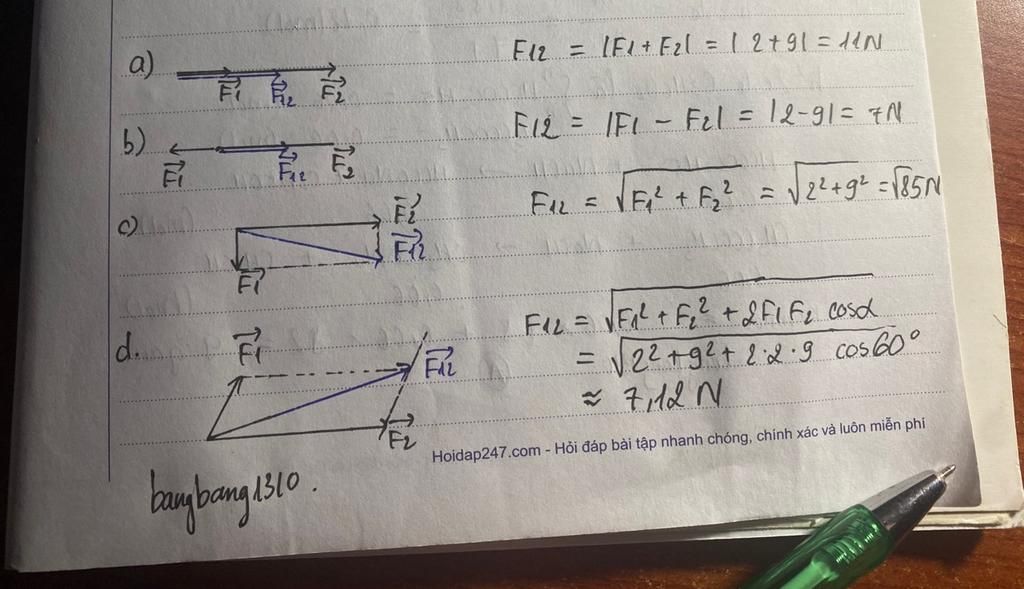 a) F₁⃗ F₁₂⃗ F₂⃗ F12 = |F1 + F2| = | 2+9| = 11N
b) F₁⃗ F₁₂⃗ F₂⃗ F12 = |F1 - F2| = |2-9| = 7N
c) F₂⃗ F₁₂⃗ F₁⃗ F12 = √F1² + F2² = √2²+9² = √85N
d. F₁⃗ F₁₂⃗ F₂⃗ F12 = √F1² + F2² + 2F1F2 cosα
= √2²+9²+2·2·9 cos60°
≈ 7,12N
Hoidap247.com - Hỏi đáp bài tập nhanh chóng, chính xác và luôn miễn phí
bangbang1310.